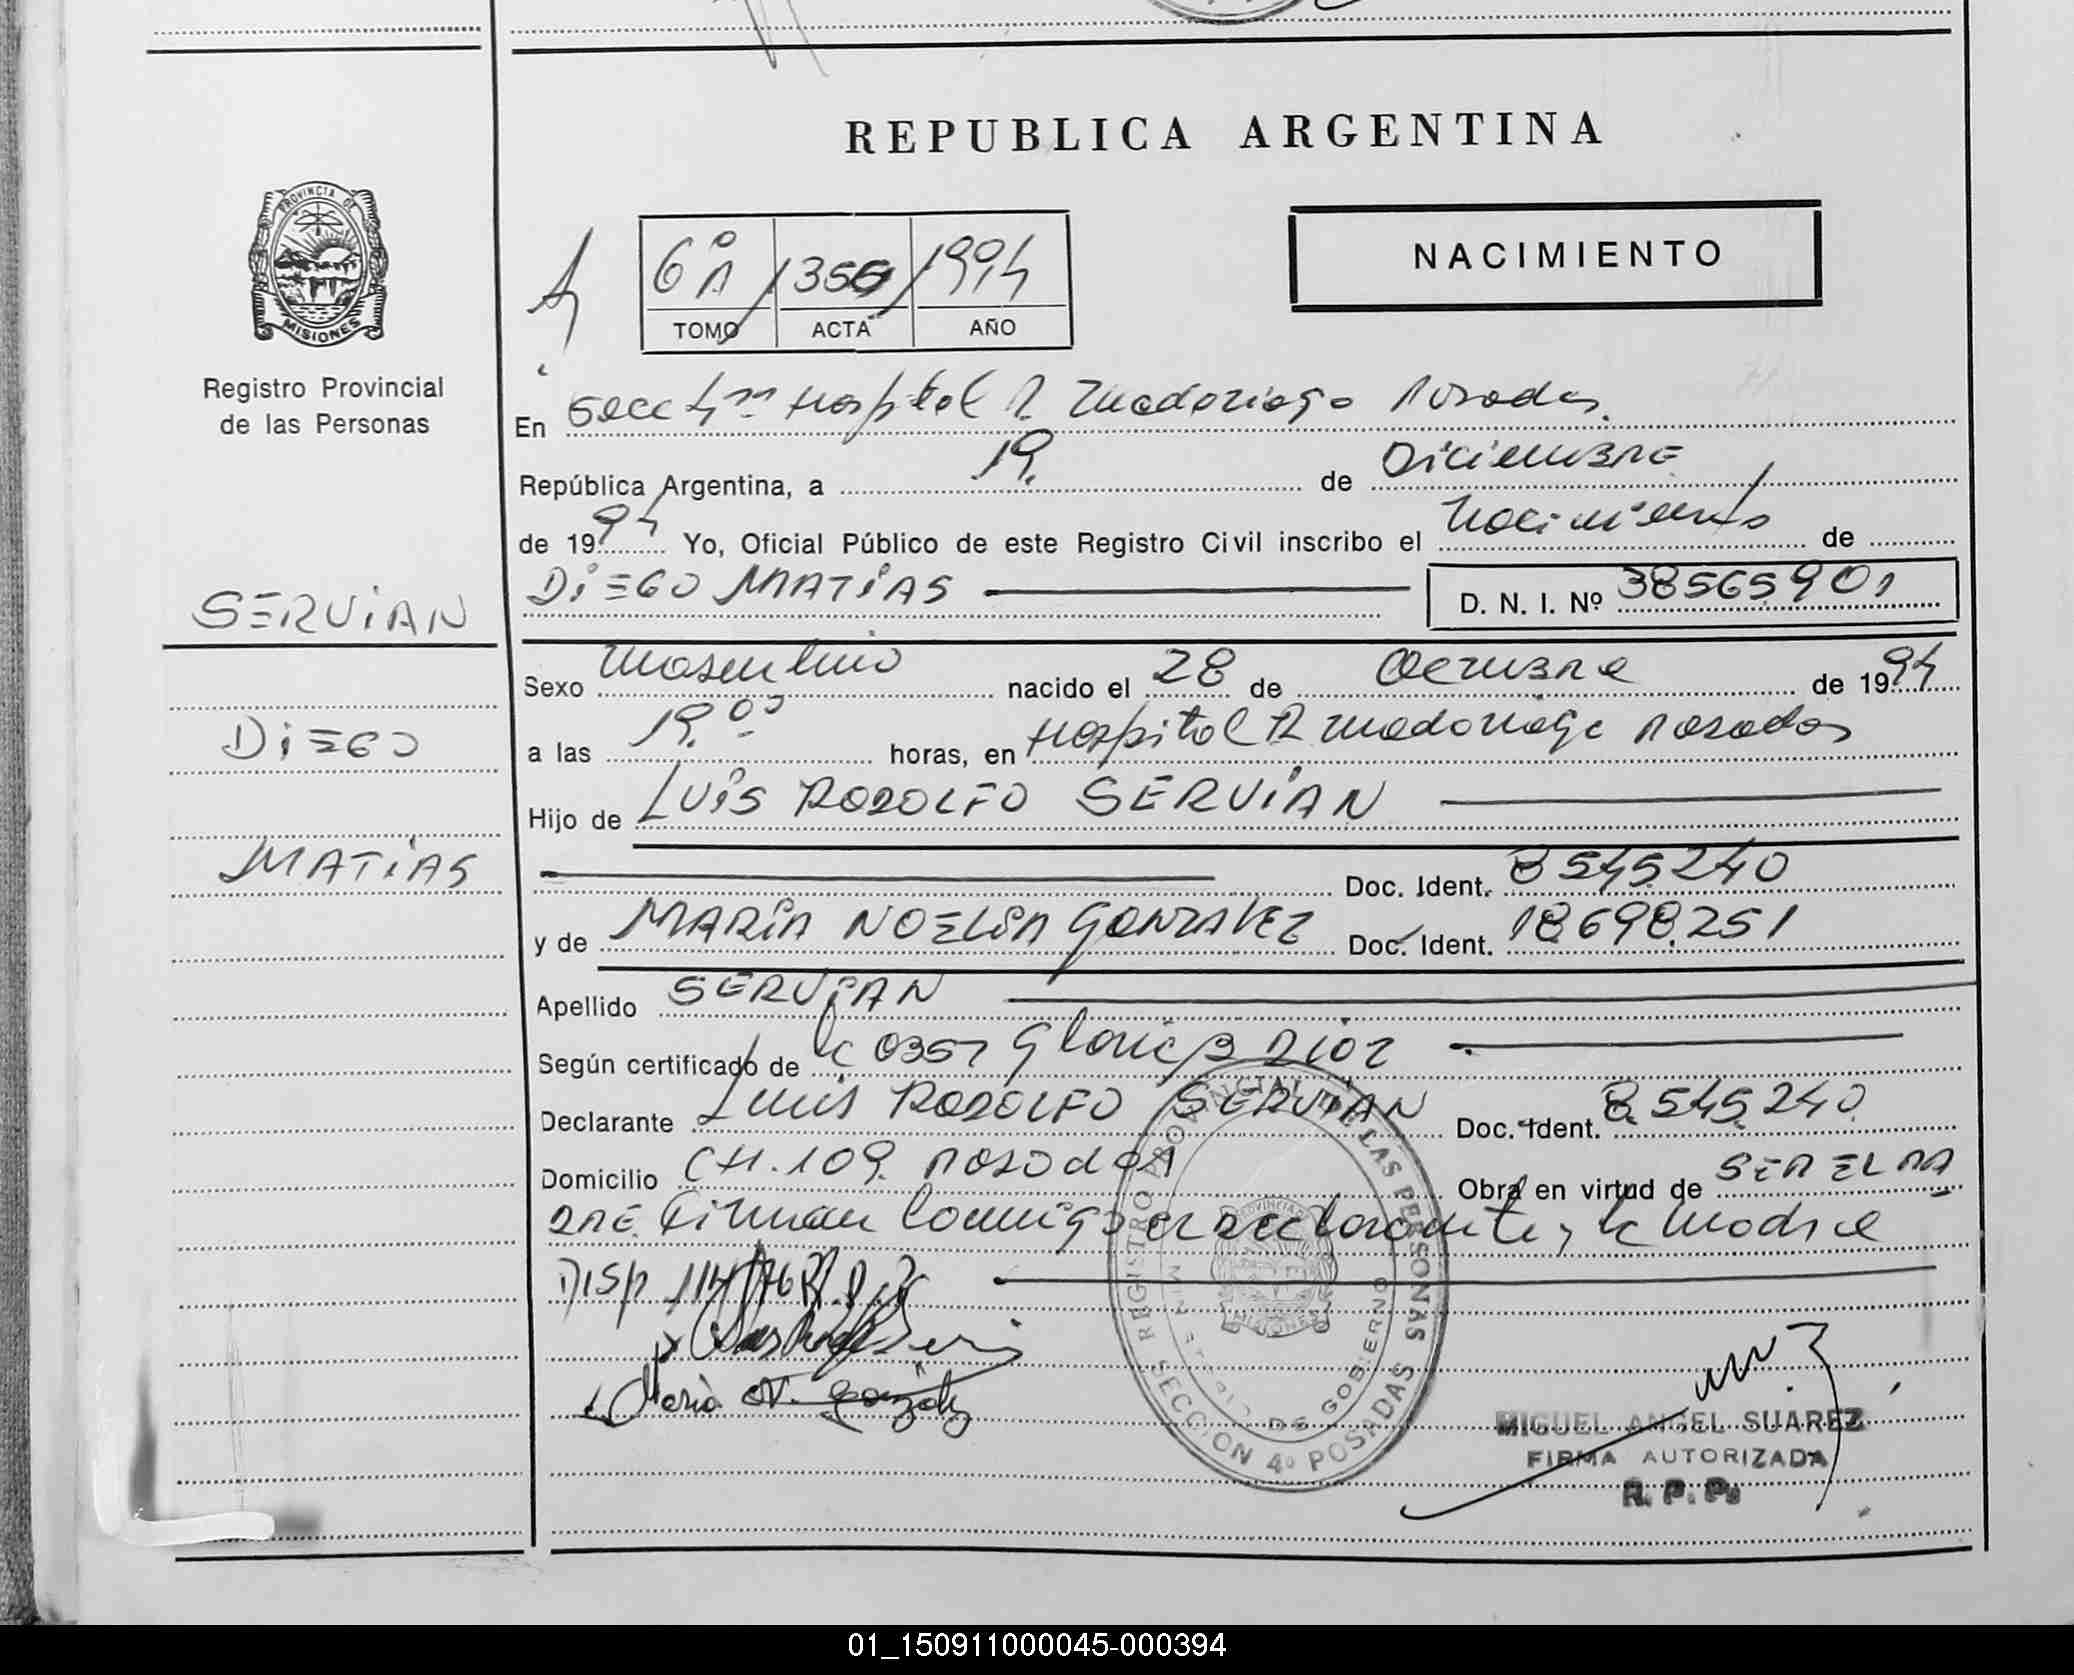 REPUBLICA ARGENTINA
PROVINCIA DE
MISIONES
Registro Provincial
de las Personas
6º A / 1356 / 1994
TOMO ACTA AÑO
NACIMIENTO
En Secc 4ta Hospital R Madariaga Posadas.
República Argentina, a 19. de Diciembre
de 1994 Yo, Oficial Público de este Registro Civil inscribo el Nacimiento de
DIEGO MATIAS D. N. I. Nº 38565901
SERVIAN
DIEGO
MATIAS
Sexo Masculino nacido el 28 de Octubre de 1994
a las 19.00 horas, en Hospital R Madariaga Posadas
Hijo de LUIS RODOLFO SERVIAN
Doc. Ident. 8545240
y de MARIA NOELIA GONZALEZ Doc. Ident. 18698251
Apellido SERVIAN
Según certificado de Gloria Diaz
Declarante Luis RODOLFO SERVIAN Doc. Ident. 8.545.240
Domicilio CH.109. Posadas Obra en virtud de SER EL PA
DRE. Firman Conmigo el declarante y la Madre
DISP. 114/76
Maria N. Gonzalez
REGISTRO PROVINCIAL DE LAS PERSONAS
MINISTERIO DE GOBIERNO
PROVINCIA DE
MISIONES
SECCION 4º POSADAS
MIGUEL ANGEL SUAREZ
FIRMA AUTORIZADA
R. P. P.
01_150911000045-000394